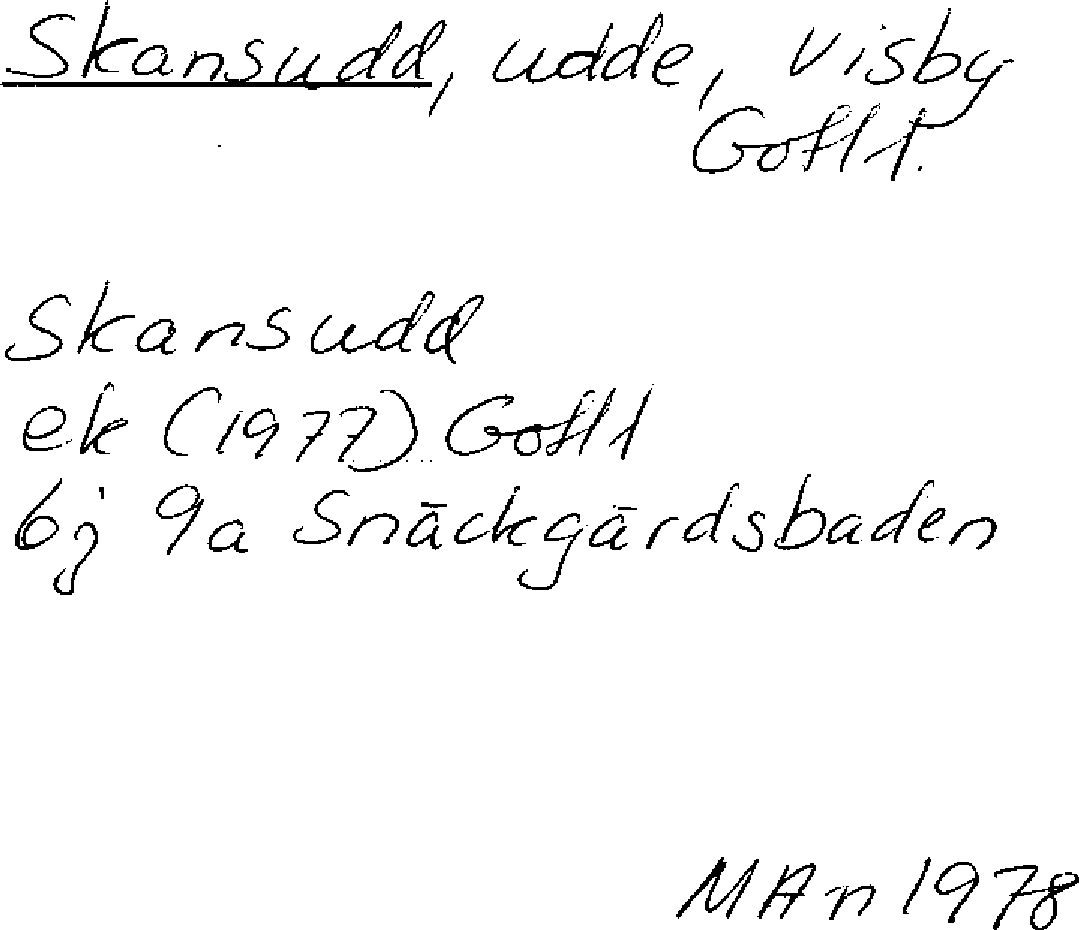 Skansudd, udde, Visby
Gotl l.
Skansudd
ek (1977) Gotl l
6j 9a Snäckgärdsbaden
MAn 1978